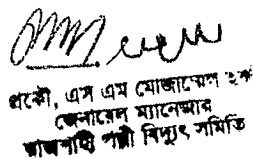 প্রকৌ, এস এম মোজাম্মেল হক
জেনারেল ম্যানেজার
রাজশাহী পল্লী বিদ্যুৎ সমিতি